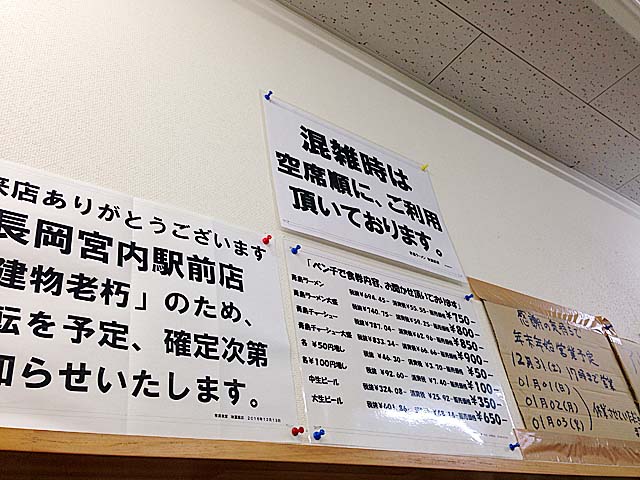 来店ありがとうございます
長岡宮内駅前店
建物老朽」のため、
転を予定、確定次第
知らせいたします。
混雑時は
空席順に、ご利用
頂いております。
「ベンチで食券内容、お聞かせ頂いております」
青島ラーメン 税抜¥694.45- 消費税¥55.55-販売価格¥750-
青島ラーメン大盛 税抜¥740.75- 消費税¥59.25-販売価格¥800-
青島チャーシュー 税抜¥787.04- 消費税¥62.96-販売価格¥850-
青島チャーシュー大盛 税抜¥833.34- 消費税¥66.66-販売価格¥900-
各¥50円増し 税抜¥46.30- 消費税¥3.70-販売価格¥50-
各¥100円増し 税抜¥92.60- 消費税¥7.40-販売価格¥100-
中生ビール 税抜¥324.08- 消費税¥25.92-販売価格¥350-
大生ビール 税抜¥601.86- 販売価格¥650-
感謝の気持ちで
年末年始営業予定
12月31(土) 17時まで営業
01月01(日)
01月02(月)
01月03(火)